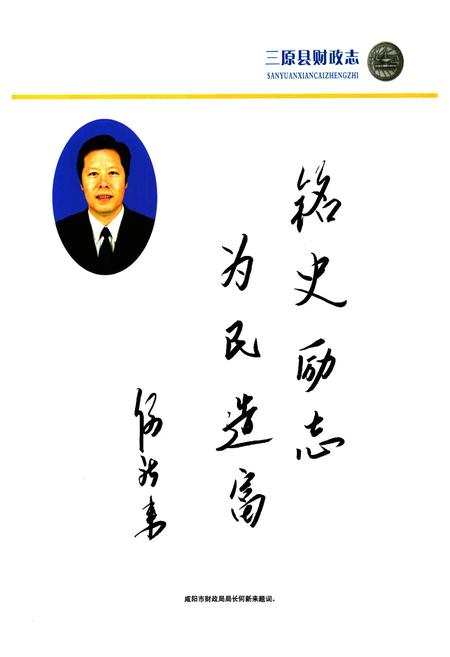 三原县财政志
SANYUANXIANCAIZHENGZHI
铭史励志
为民造富
何新来
咸阳市财政局局长何新来题词。